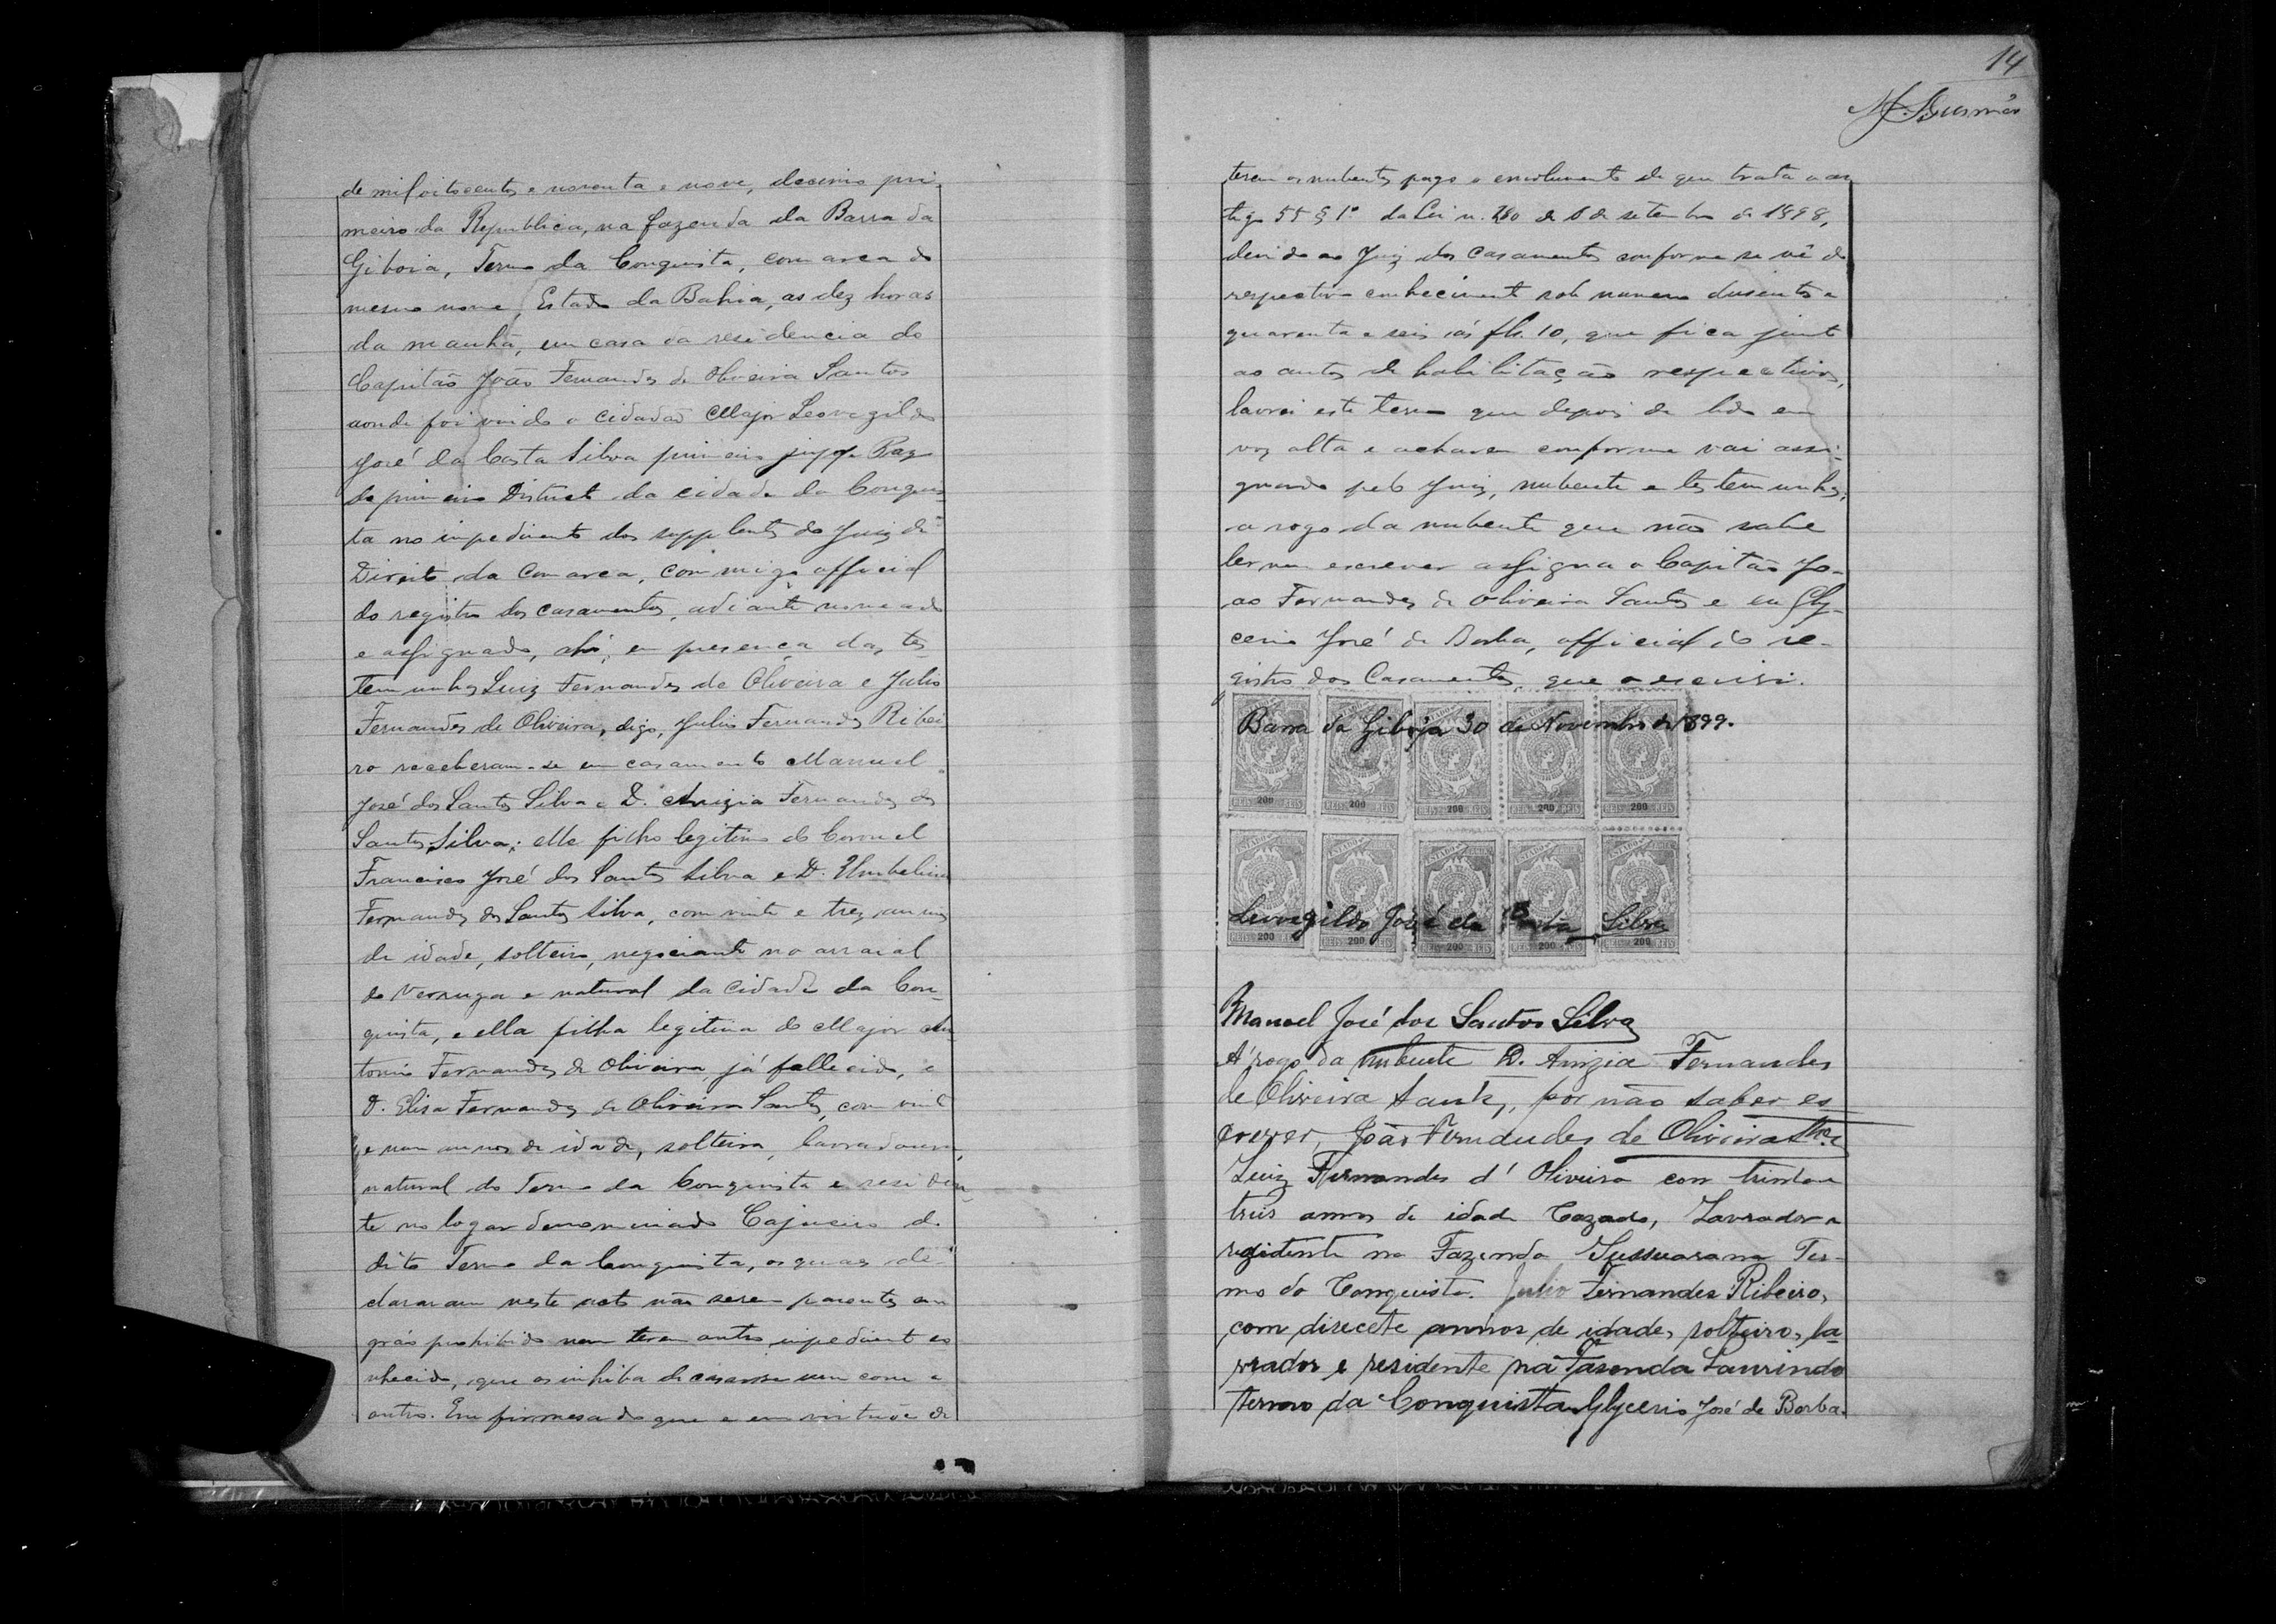 de mil oitocentos e noventa e nove, decimo pri-
meiro da Republica, na fazenda da Barra da
Giboia, Termo da Conquista, comarca do
mesmo nome, Estado da Bahia, as dez horas
da manhã, em casa da residencia do
Capitão João Fernandes de Oliveira Santos
aonde foi vindo o cidadão Major Leovegildo
José da Costa Silva primeiro juiz de Paz
do primeiro Districto da cidade da Conquis-
ta no impedimento dos supplentes do Juiz de
Direito da Comarca, commigo official
do registro dos casamentos, adiante nomeado
e assignado, ahi, em presença das tes-
temunhas Luiz Fernandes de Oliveira e Julio
Fernandes de Oliveira, digo, Julio Fernandes Ribei-
ro receberam-se em casamento Manuel
José dos Santos Silva e D. Anizia Fernandes dos
Santos Silva; elle filho legitimo do Coronel
Francisco José dos Santos Silva e D. Umbelina
Fernandes dos Santos Silva, com vinte e trez annos
de idade, solteiro, negociante no arraial
do Verruga e natural da cidade da Con-
quista, e ella filha legitima do Major An
tonio Fernandes de Oliveira, já fallecido, e
D. Elisa Fernandes de Oliveira Santos, com vinte
e um annos de idade, solteira, lavradoura,
natural do Termo da Conquista e residen-
te no logar denominado Cajueiro do
dito Termo da Conquista, os quaes de-
clararam neste acto não serem parentes em
gráo prohibido nem terem outro impedimento co
nhecido, que os inhiba de casarem-se um com o
outro. Em firmesa do que e em virtude de
14
terem os nubentes pago o emolumento de que trata o ar
tigo 55 § 1º da Lei n. 280 de 6 de setembro de 1898,
devido ao Juiz dos Casamentos conforme se vê do
respectivo conhecimento sob numero dusentos e
quarenta e seis ás fls. 10, que fica junto
ao autos de habilitação respectivos,
lavrei este termo que depois de lido em
voz alta e acharem conforme vai assi-
gnado pelo Juiz, nubente e testemunhas,
a rogo da nubente que não sabe
ler nem escrever assigna o Capitão Jo-
ao Fernandes de Oliveira Santos e eu Gly-
cerio José de Borba, official do re-
gistro dos Casamentos, que o escrivi.
Barra da Giboja 30 de Novembro de 1899.
200 200 200 200 200
Leovegildo José da Costa Silva
200 200 200 200 200
Manoel José dos Santos Silva
A' rogo da nubente D. Anizia Fernandes
de Oliveira Santos, por não saber es
crever, João Fernandes de Oliveira Stos
Luiz Fernandes d'Oliveira com trinta e
treis annos de idade Cazado, Lavrador e
rezidente na Fazenda Sussuarana Ter-
mo da Conquista. Julio Fernandes Ribeiro,
com disecete annos de idade, solteiro, la-
vrador e residente na Fasenda Laurindo
termo da Conquista. Glycerio José de Borba.